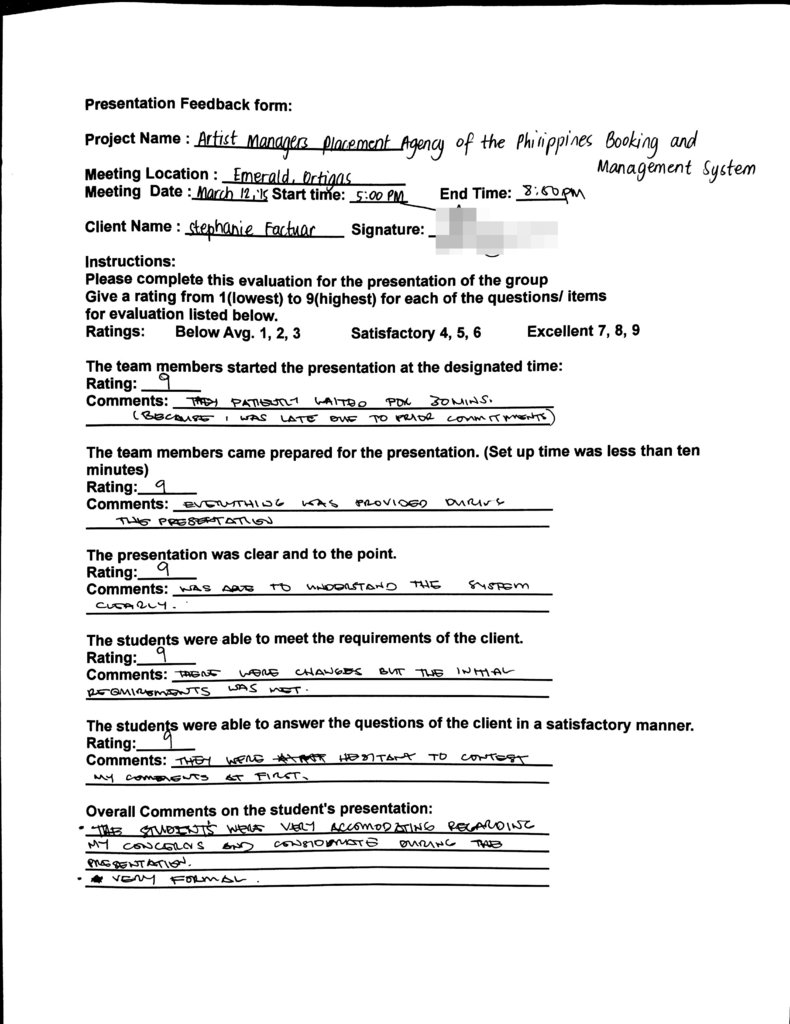 Presentation Feedback form:
Project Name : Artist Managers Placement Agency of the Philippines Booking and
Management System
Meeting Location : Emerald, Ortigas
Meeting Date : March 12, '15 Start time: 5:00 PM End Time: 8:00 PM
Client Name : Stephanie Factuar Signature:
Instructions:
Please complete this evaluation for the presentation of the group
Give a rating from 1(lowest) to 9(highest) for each of the questions/ items
for evaluation listed below.
Ratings: Below Avg. 1, 2, 3 Satisfactory 4, 5, 6 Excellent 7, 8, 9
The team members started the presentation at the designated time:
Rating: 9
Comments: THEY PATIENTLY WAITED FOR 30 MINS.
(BECAUSE I WAS LATE DUE TO PRIOR COMMITMENTS)
The team members came prepared for the presentation. (Set up time was less than ten
minutes)
Rating: 9
Comments: EVERYTHING WAS PROVIDED DURING
THE PRESENTATION
The presentation was clear and to the point.
Rating: 9
Comments: WAS ABLE TO UNDERSTAND THE SYSTEM
CLEARLY.
The students were able to meet the requirements of the client.
Rating: 9
Comments: THERE WERE CHANGES BUT THE INITIAL
REQUIREMENTS WAS MET.
The students were able to answer the questions of the client in a satisfactory manner.
Rating: 9
Comments: THEY WERE HESITANT TO CONTEST
MY COMMENTS AT FIRST.
Overall Comments on the student's presentation:
• THE STUDENTS WERE VERY ACCOMODATING REGARDING
MY CONCERNS AND CONSIDERATE DURING THE
PRESENTATION.
• VERY FORMAL.